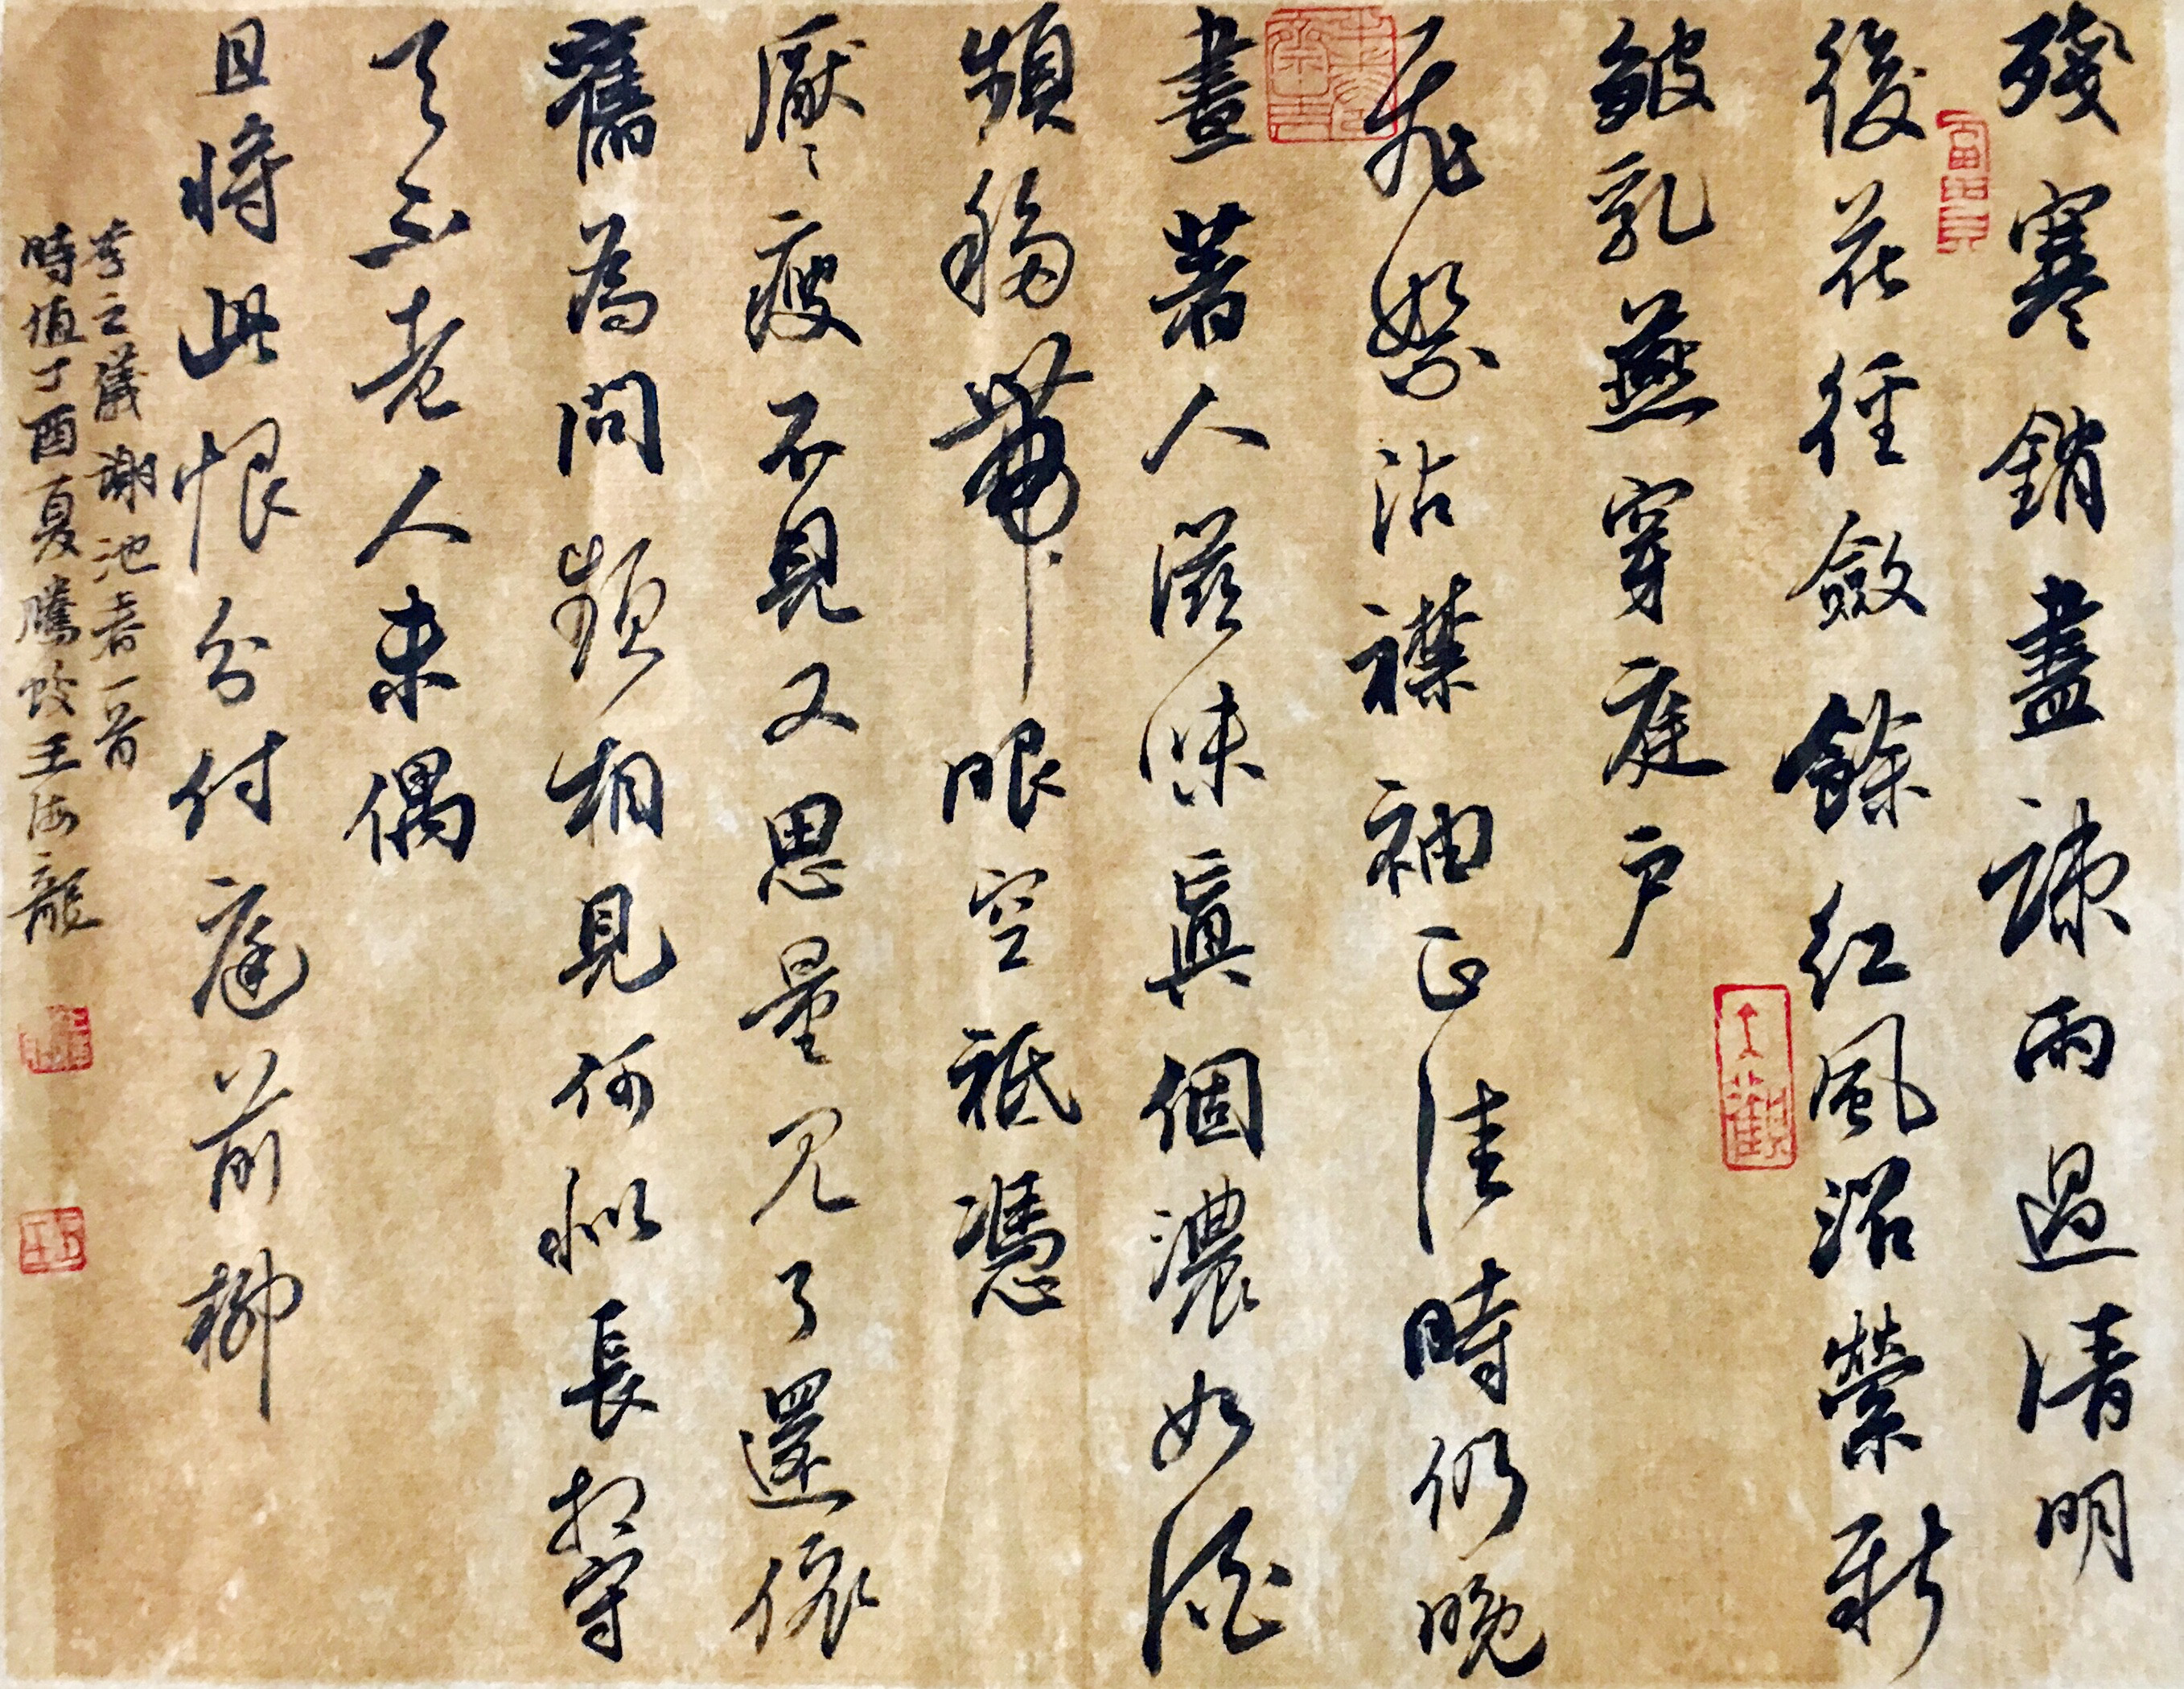 殘寒銷盡疎雨過清明
後花徑斂餘紅風沼縈新
皺乳燕穿庭戶
飛絮沾襟袖正佳時仍晚
晝著人滋味真個濃如酒
頻移帶眼空祗憑
厭厭瘦不見又思量見了還依
舊為問頻相見何似長相守
天不老人未偶
且將此恨分付庭前柳
李之儀謝池春一首
時值丁酉夏騰蛟王海龍